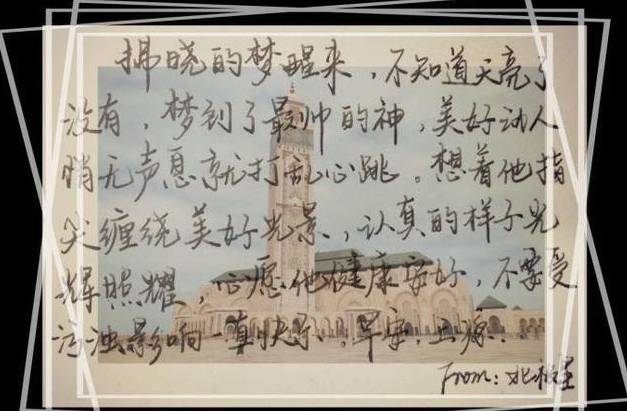 拂晓的梦醒来，不知道天亮了
没有，梦到了最帅的神，美好动人
悄无声息就打乱心跳。想着他指
尖缠绕美好光景，认真的样子光
辉照耀，心愿他健康安好，不要受
污浊影响 真的快乐，早安，上综
From: 北极星